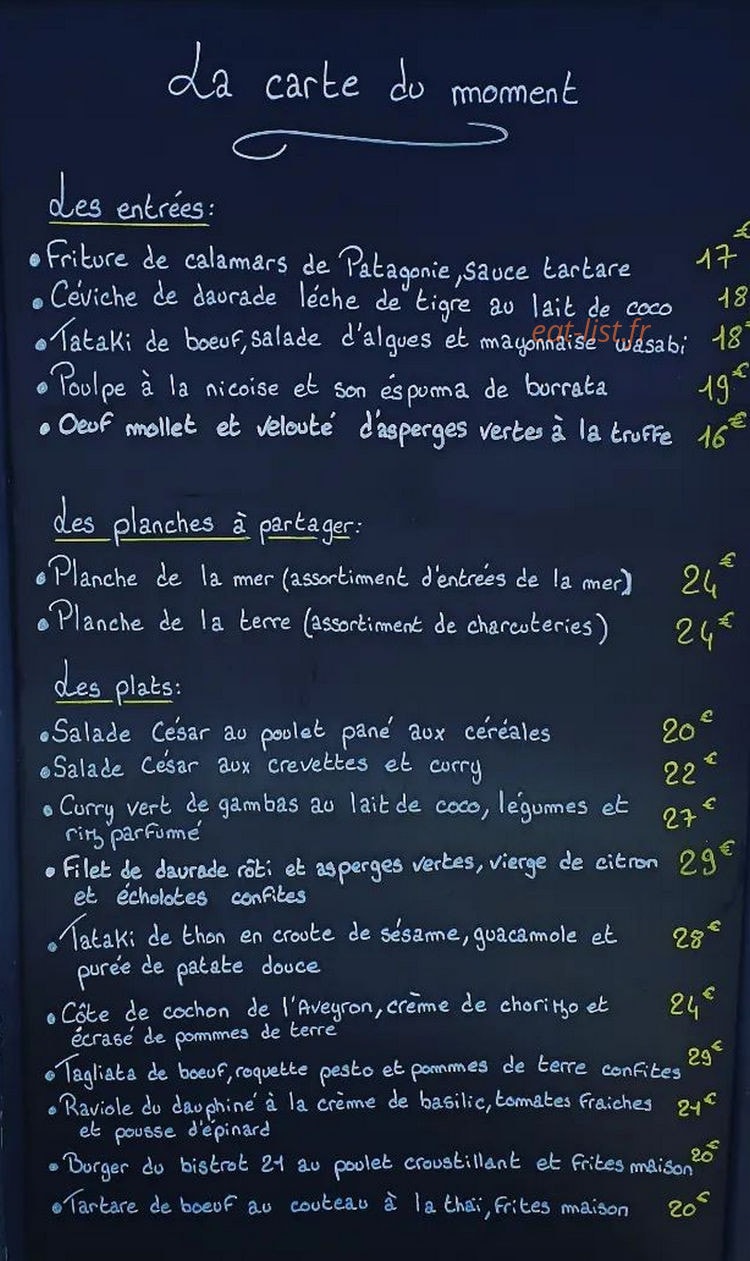 La carte du moment
Les entrées:
• Friture de calamars de Patagonie, sauce tartare 17€
• Céviche de daurade léche de tigre au lait de coco 18
eat-list.fr
• Tataki de boeuf, salade d'algues et mayonnaise wasabi 18€
• Poulpe à la nicoise et son éspuma de burrata 19€
• Oeuf mollet et velouté d'asperges vertes à la truffe 16€
Les planches à partager:
• Planche de la mer (assortiment d'entrées de la mer) 24€
• Planche de la terre (assortiment de charcuteries) 24€
Les plats:
• Salade César au poulet pané aux céréales 20€
• Salade César aux crevettes et curry 22€
• Curry vert de gambas au lait de coco, légumes et 27€
riz parfumé
• Filet de daurade rôti et asperges vertes, vierge de citron 29€
et écholotes confites
• Tataki de thon en croute de sésame, guacamole et 28€
purée de patate douce
• Côte de cochon de l'Aveyron, crème de chorizo et 24€
écrasé de pommes de terre
• Tagliata de boeuf, roquette pesto et pommes de terre confites 29€
• Raviole du dauphiné à la crème de basilic, tomates fraiches 21€
et pousse d'épinard
• Burger du bistrot 21 au poulet croustillant et frites maison 20€
• Tartare de boeuf au couteau à la thaï, frites maison 20€